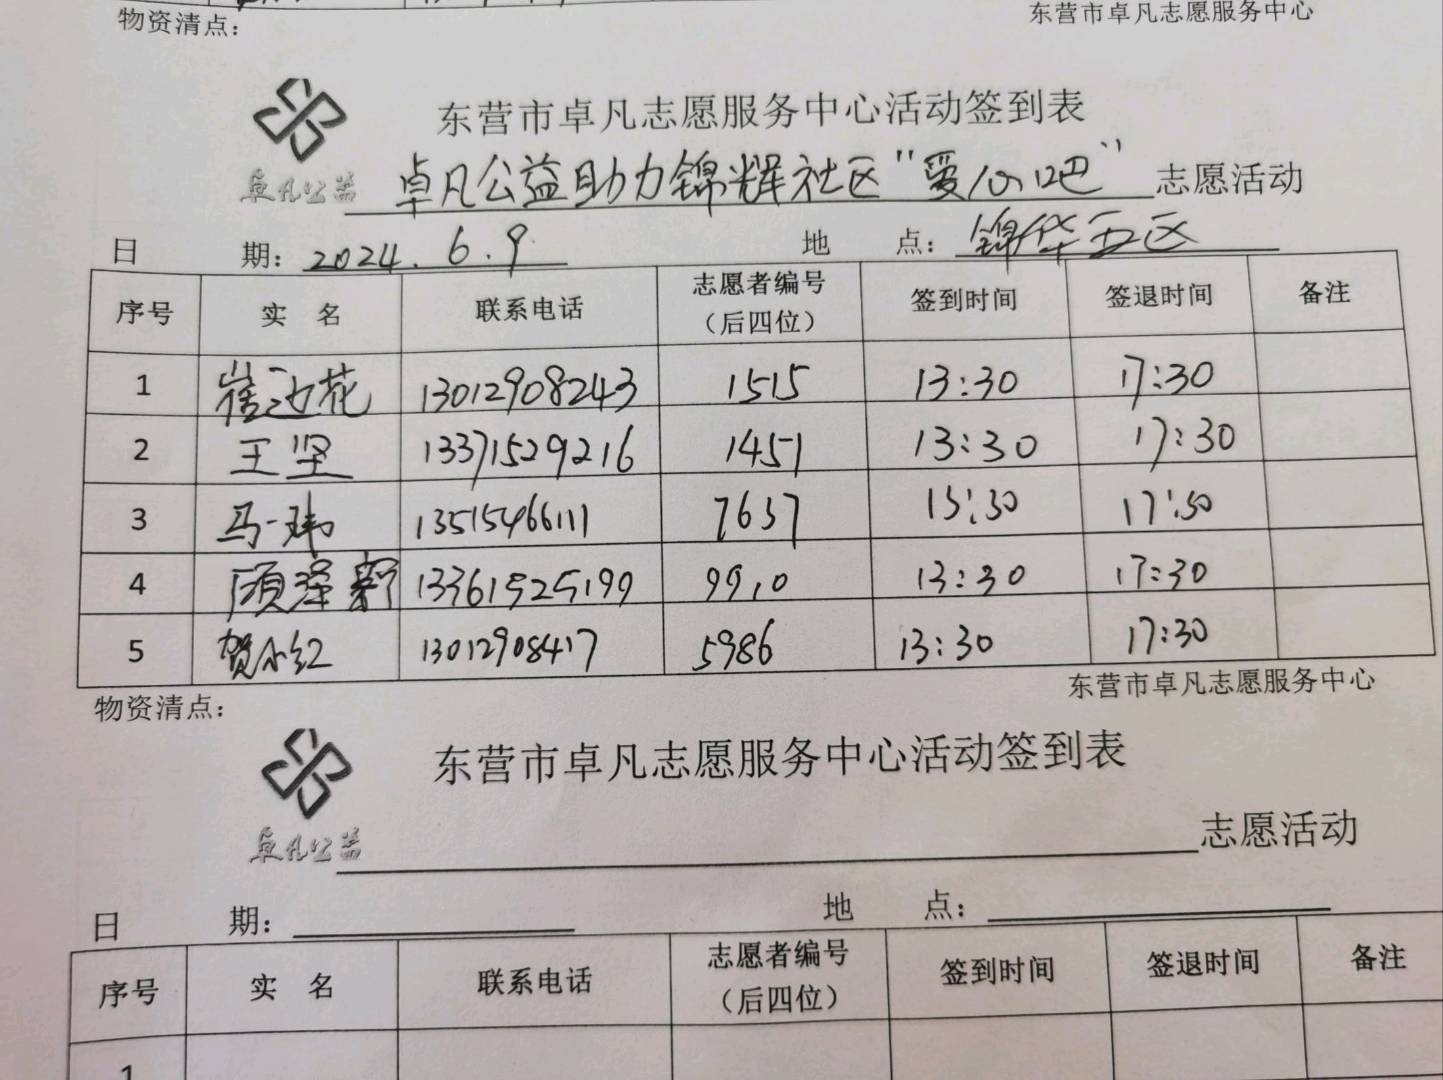 物资清点：
东营市卓凡志愿服务中心
东营市卓凡志愿服务中心活动签到表
卓凡公益 卓凡公益助力锦辉社区"爱心吧" 志愿活动
日 期：2024.6.9 地 点：锦华五区
序号 实 名 联系电话 志愿者编号（后四位） 签到时间 签退时间 备注
1 崔花 13012908243 1515 13:30 17:30
2 王坚 13371529216 1451 13:30 17:30
3 马玮 13515466111 7637 13:30 17:30
4 顾泽新 13361525199 9910 13:30 17:30
5 贺小红 13012908417 5986 13:30 17:30
物资清点：
东营市卓凡志愿服务中心
东营市卓凡志愿服务中心活动签到表
卓凡公益 志愿活动
日 期： 地 点：
序号 实 名 联系电话 志愿者编号（后四位） 签到时间 签退时间 备注
1